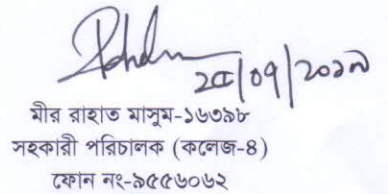 ২৫/০৭/২০১৭
মীর রাহাত মাসুম-১৬৩৯৮
সহকারী পরিচালক (কলেজ-৪)
ফোন নং-৯৫৫৬০৬২